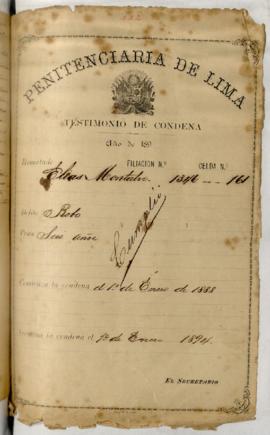 PENITENCIARIA DE LIMA
TESTIMONIO DE CONDENA
Año de 18
FILIACION N.º CELDA N.º
Rematado Elias Montalvo 1346 161
Delito Robo
Pena Seis años
Cumplió
Comienza la condena el 1º de Enero de 1888
Termina la condena el 1º de Enero 1894.
EL SECRETARIO